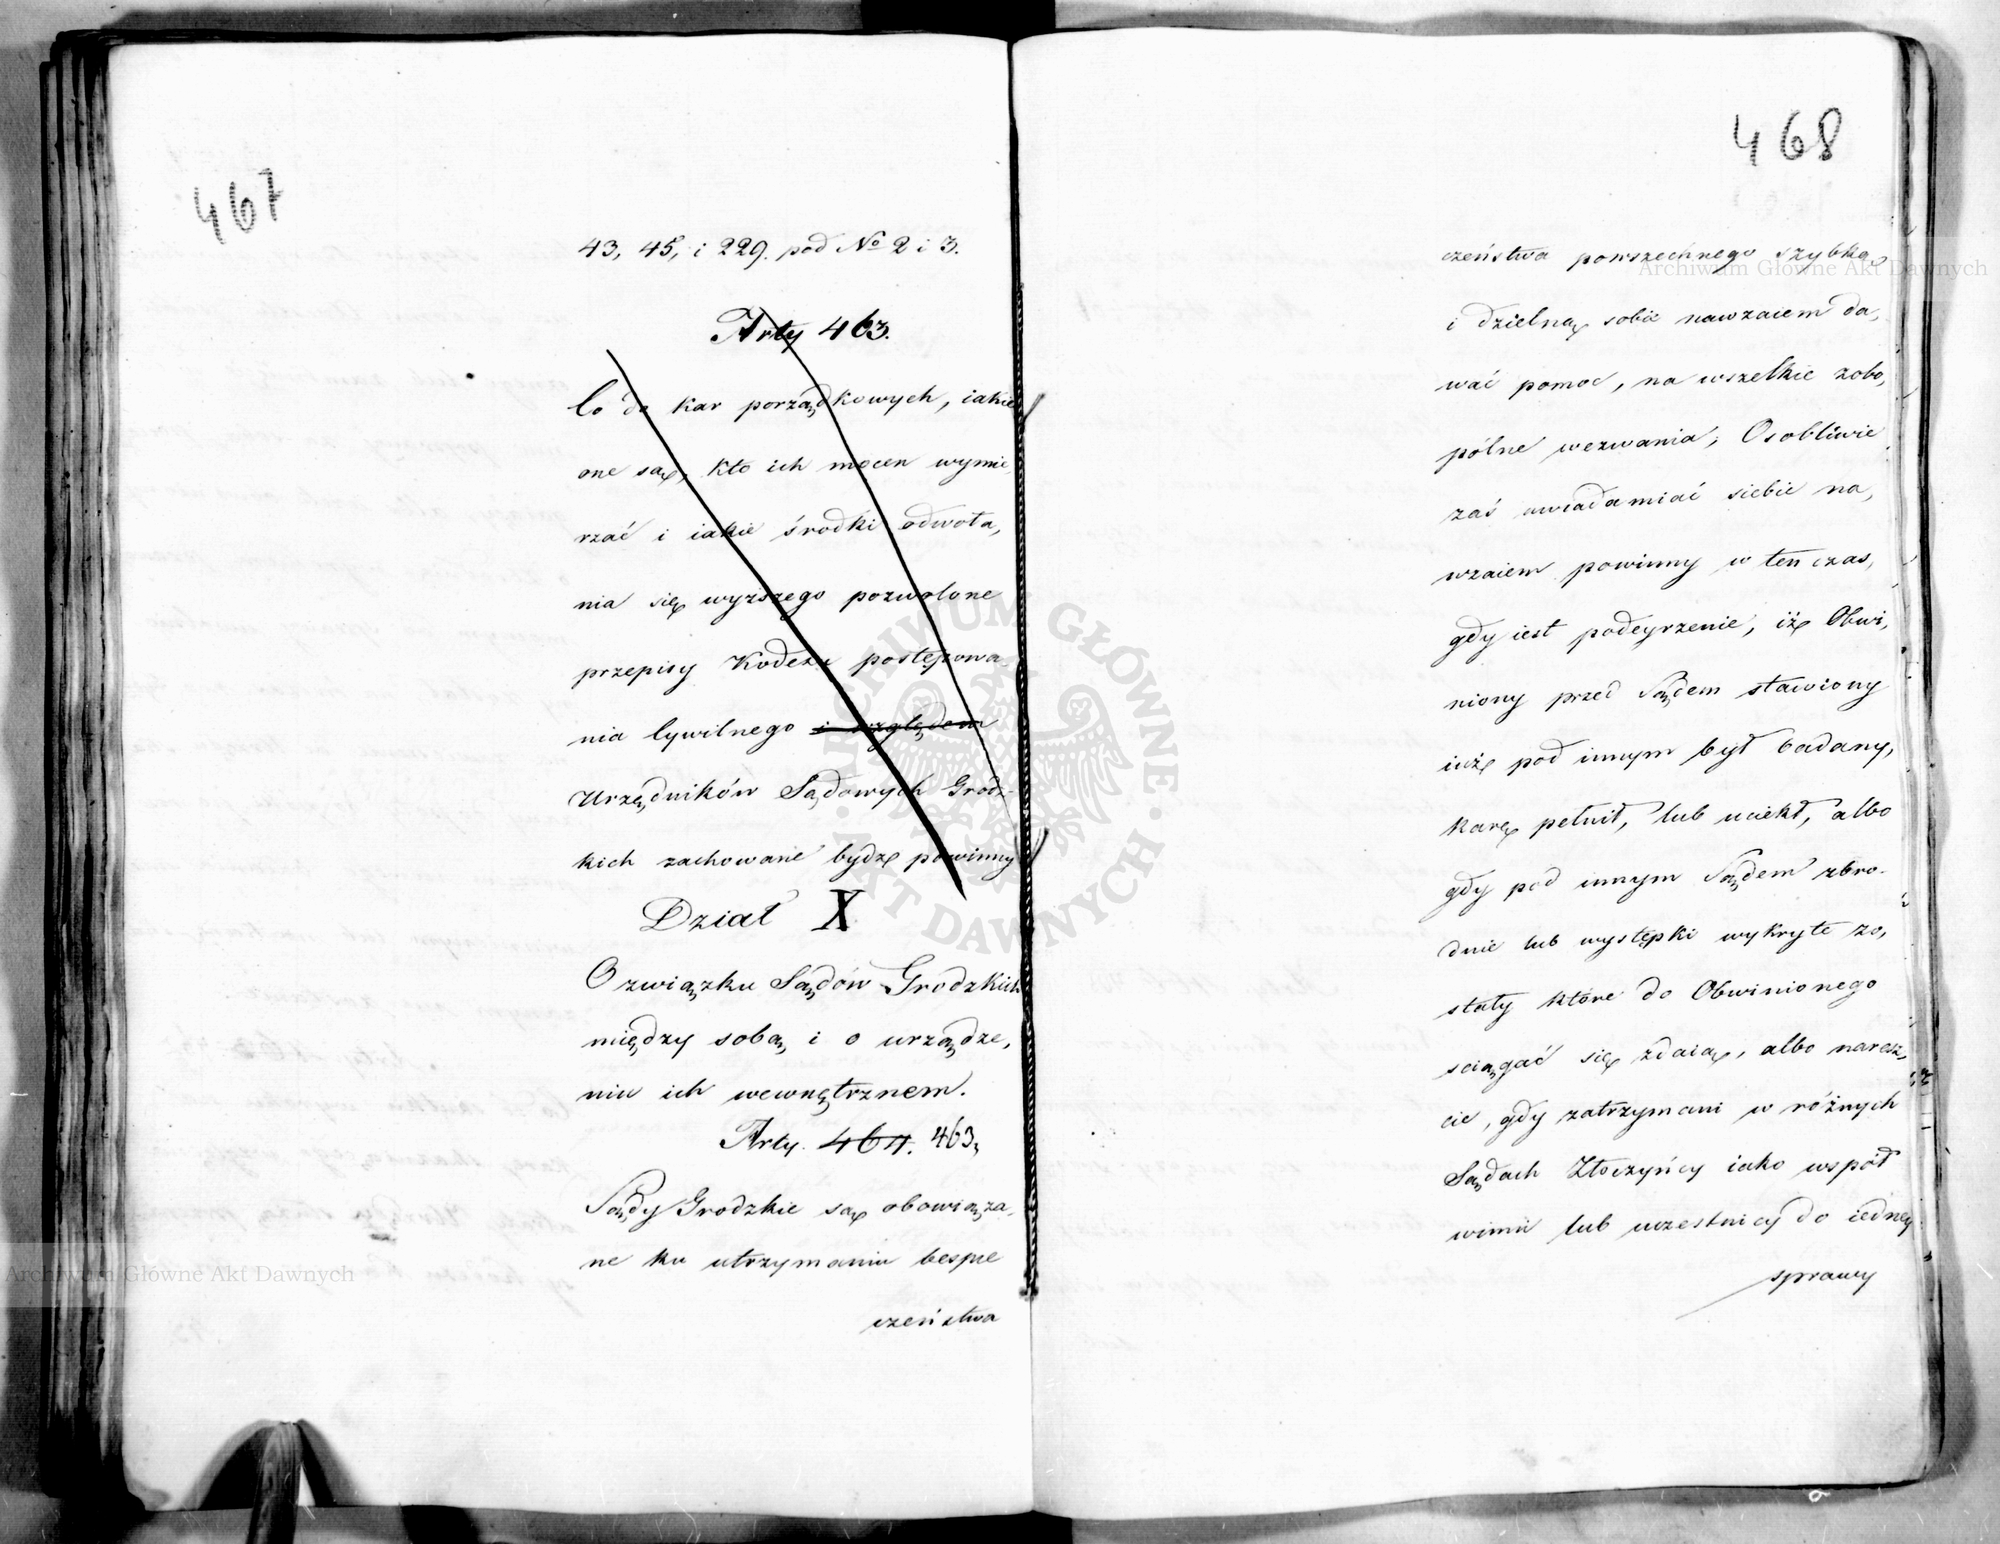 467
43, 45, i 229. pod No 2 i 3.
Arty 463.
Co do kar porządkowych, iakie
one są, kto ich mocen wymie
rzać i iakie środki odwoła,
nia się wyższego pozwolone
przepisy Kodexu postępowa
nia Cywilnego i względem
Urzędników Sądowych Grodz-
kich zachowane bydź powinny
Dział X
O związku Sądów Grodzkich
między sobą, i o urządze,
niu ich wewnętrznem.
Arty. 464. 463,
Sądy Grodzkie są obowiąza,
ne ku utrzymaniu bespie
czeństwa
468
czeństwa powszechnego szybką
i dzielną sobie nawzaiem da,
wać pomoc, na wszelkie zobo,
pólne wezwania; Osobliwie
zaś uwiadamiać siebie na,
wzaiem powinny w ten czas,
gdy iest podeyrzenie, iż Obwi,
niony przed Sądem stawiony
iuż pod innym był badany,
karę pełnił, lub uciekł, albo
gdy pod innym Sądem zbro-
dnie lub występki wykryte zo,
stały które do Obwinionego
sciągać się zdaią, albo naresz,
cie, gdy zatrzymani w różnych
Sądach Złoczyńcy iako współ
winni lub uczestnicy do iedney
sprawy
Archiwum Główne Akt Dawnych
Archiwum Główne Akt Dawnych
ARCHIWUM GŁÓWNE · AKT DAWNYCH ·